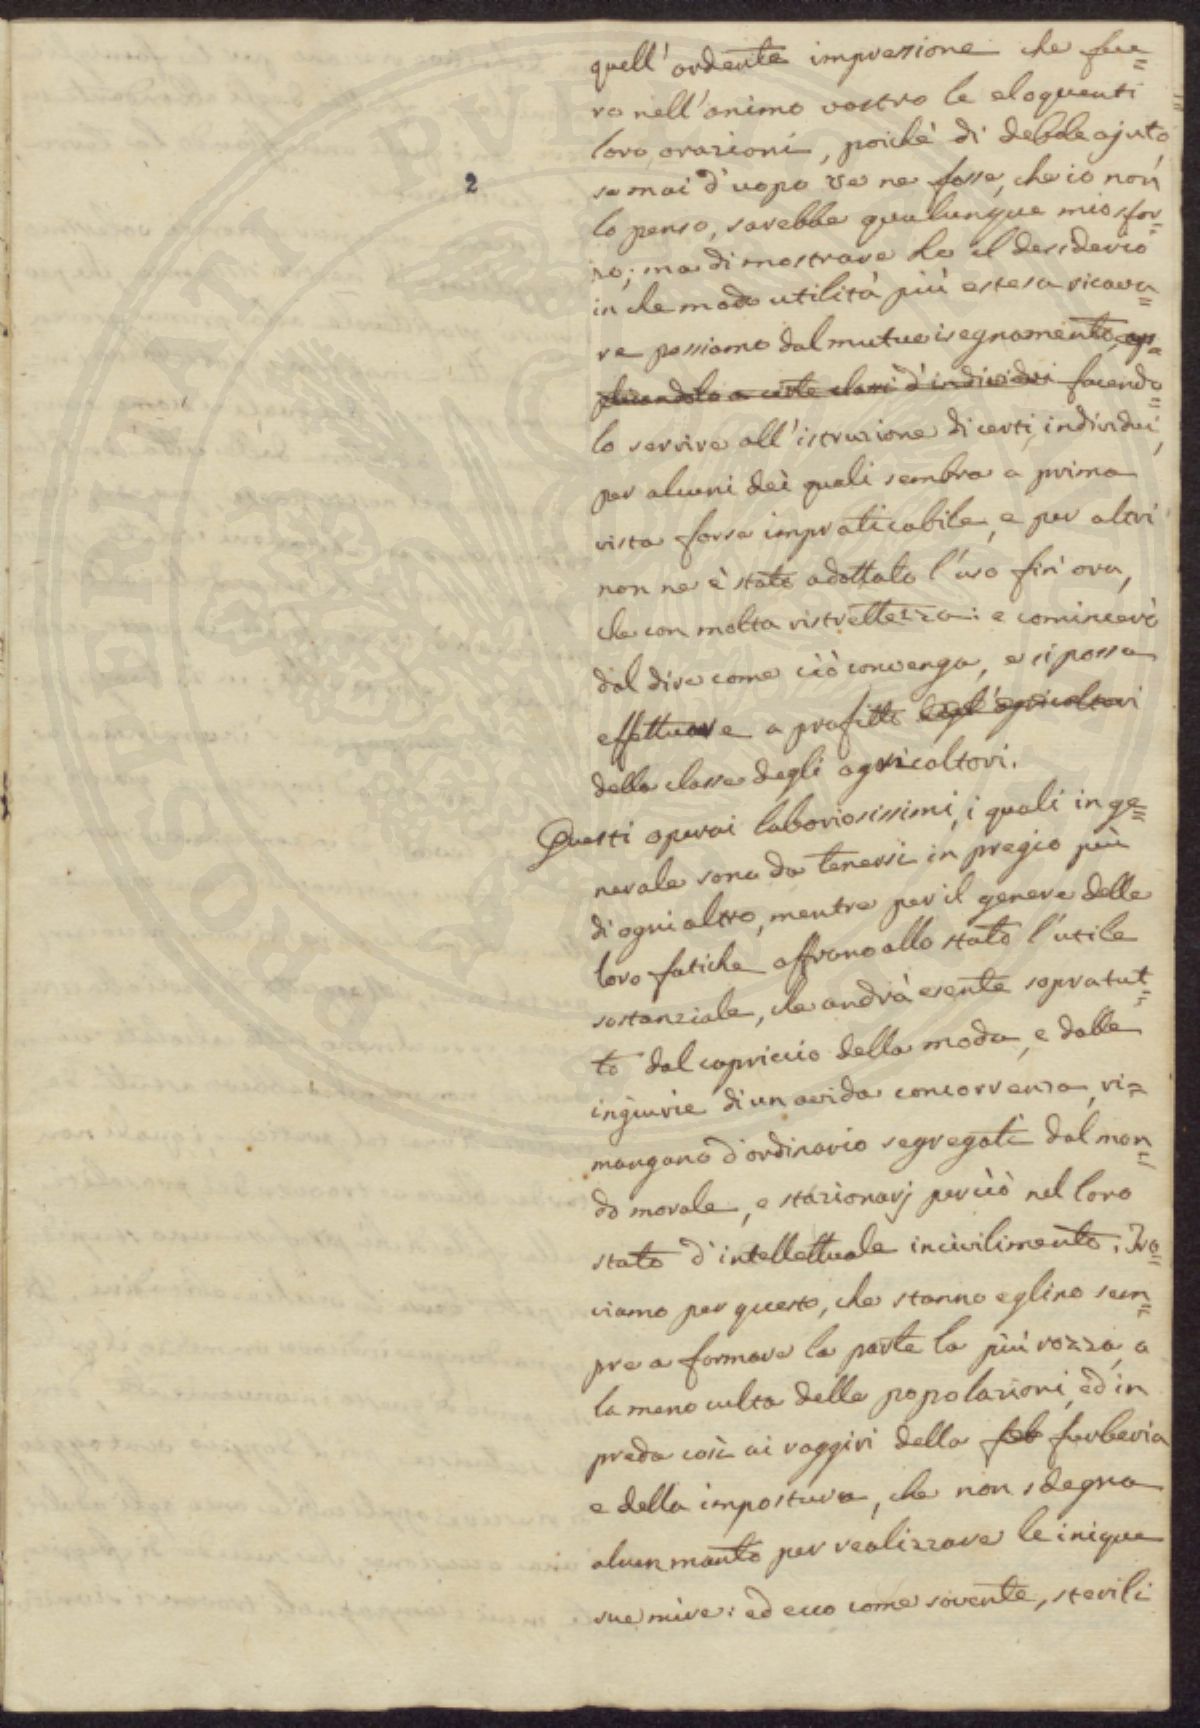 quell'ardente impressione che fece=
ro nell'animo vostro le eloquenti
loro orazioni, poichè di debole ajuto
se mai d'uopo ve ne fosse, che io non
lo penso, sarebbe qualunque mio sfor=
zo; ma di mostrare ho il desiderio
in che modo utilità più estesa ricava=
re possiamo dal mutuo isegnamento, ap=
plicandolo a certe classi d'individui facendo=
lo servire all'istruzione di certi individui,
per alcuni dei quali sembra a prima
vista forse impraticabile, e per altri
non ne è stato adottato l'uso fin'ora,
che con molta ristrettezza: e comincerò
dal dire come ciò convenga, e si possa
effettuare a profitto degl'agricoltori
della classe degli agricoltori.
Questi operai laboriosissimi, i quali in ge=
nerale sono da tenersi in pregio più
di ogni altro, mentre per il genere delle
loro fatiche offrono allo stato l'utile
sostanziale, che andrà esente sopratut=
to dal capriccio della moda, e dalle
ingiurie di un avida concorrenza, ri=
mangano d'ordinario segregati dal mon=
do morale, e stazionarj perciò nel loro
stato d'intellettuale incivilimento. Tro=
viamo per questo, che stanno eglino sem=
pre a formare la parte la più rozza, e
la meno culta delle popolazioni, ed in
preda così ai raggiri della feb furberia
e della impostura, che non sdegna
alcun manto per realizzare le inique
sue mire: ed ecco come sovente, sterili
2
POSTERITATI PVBLICAE